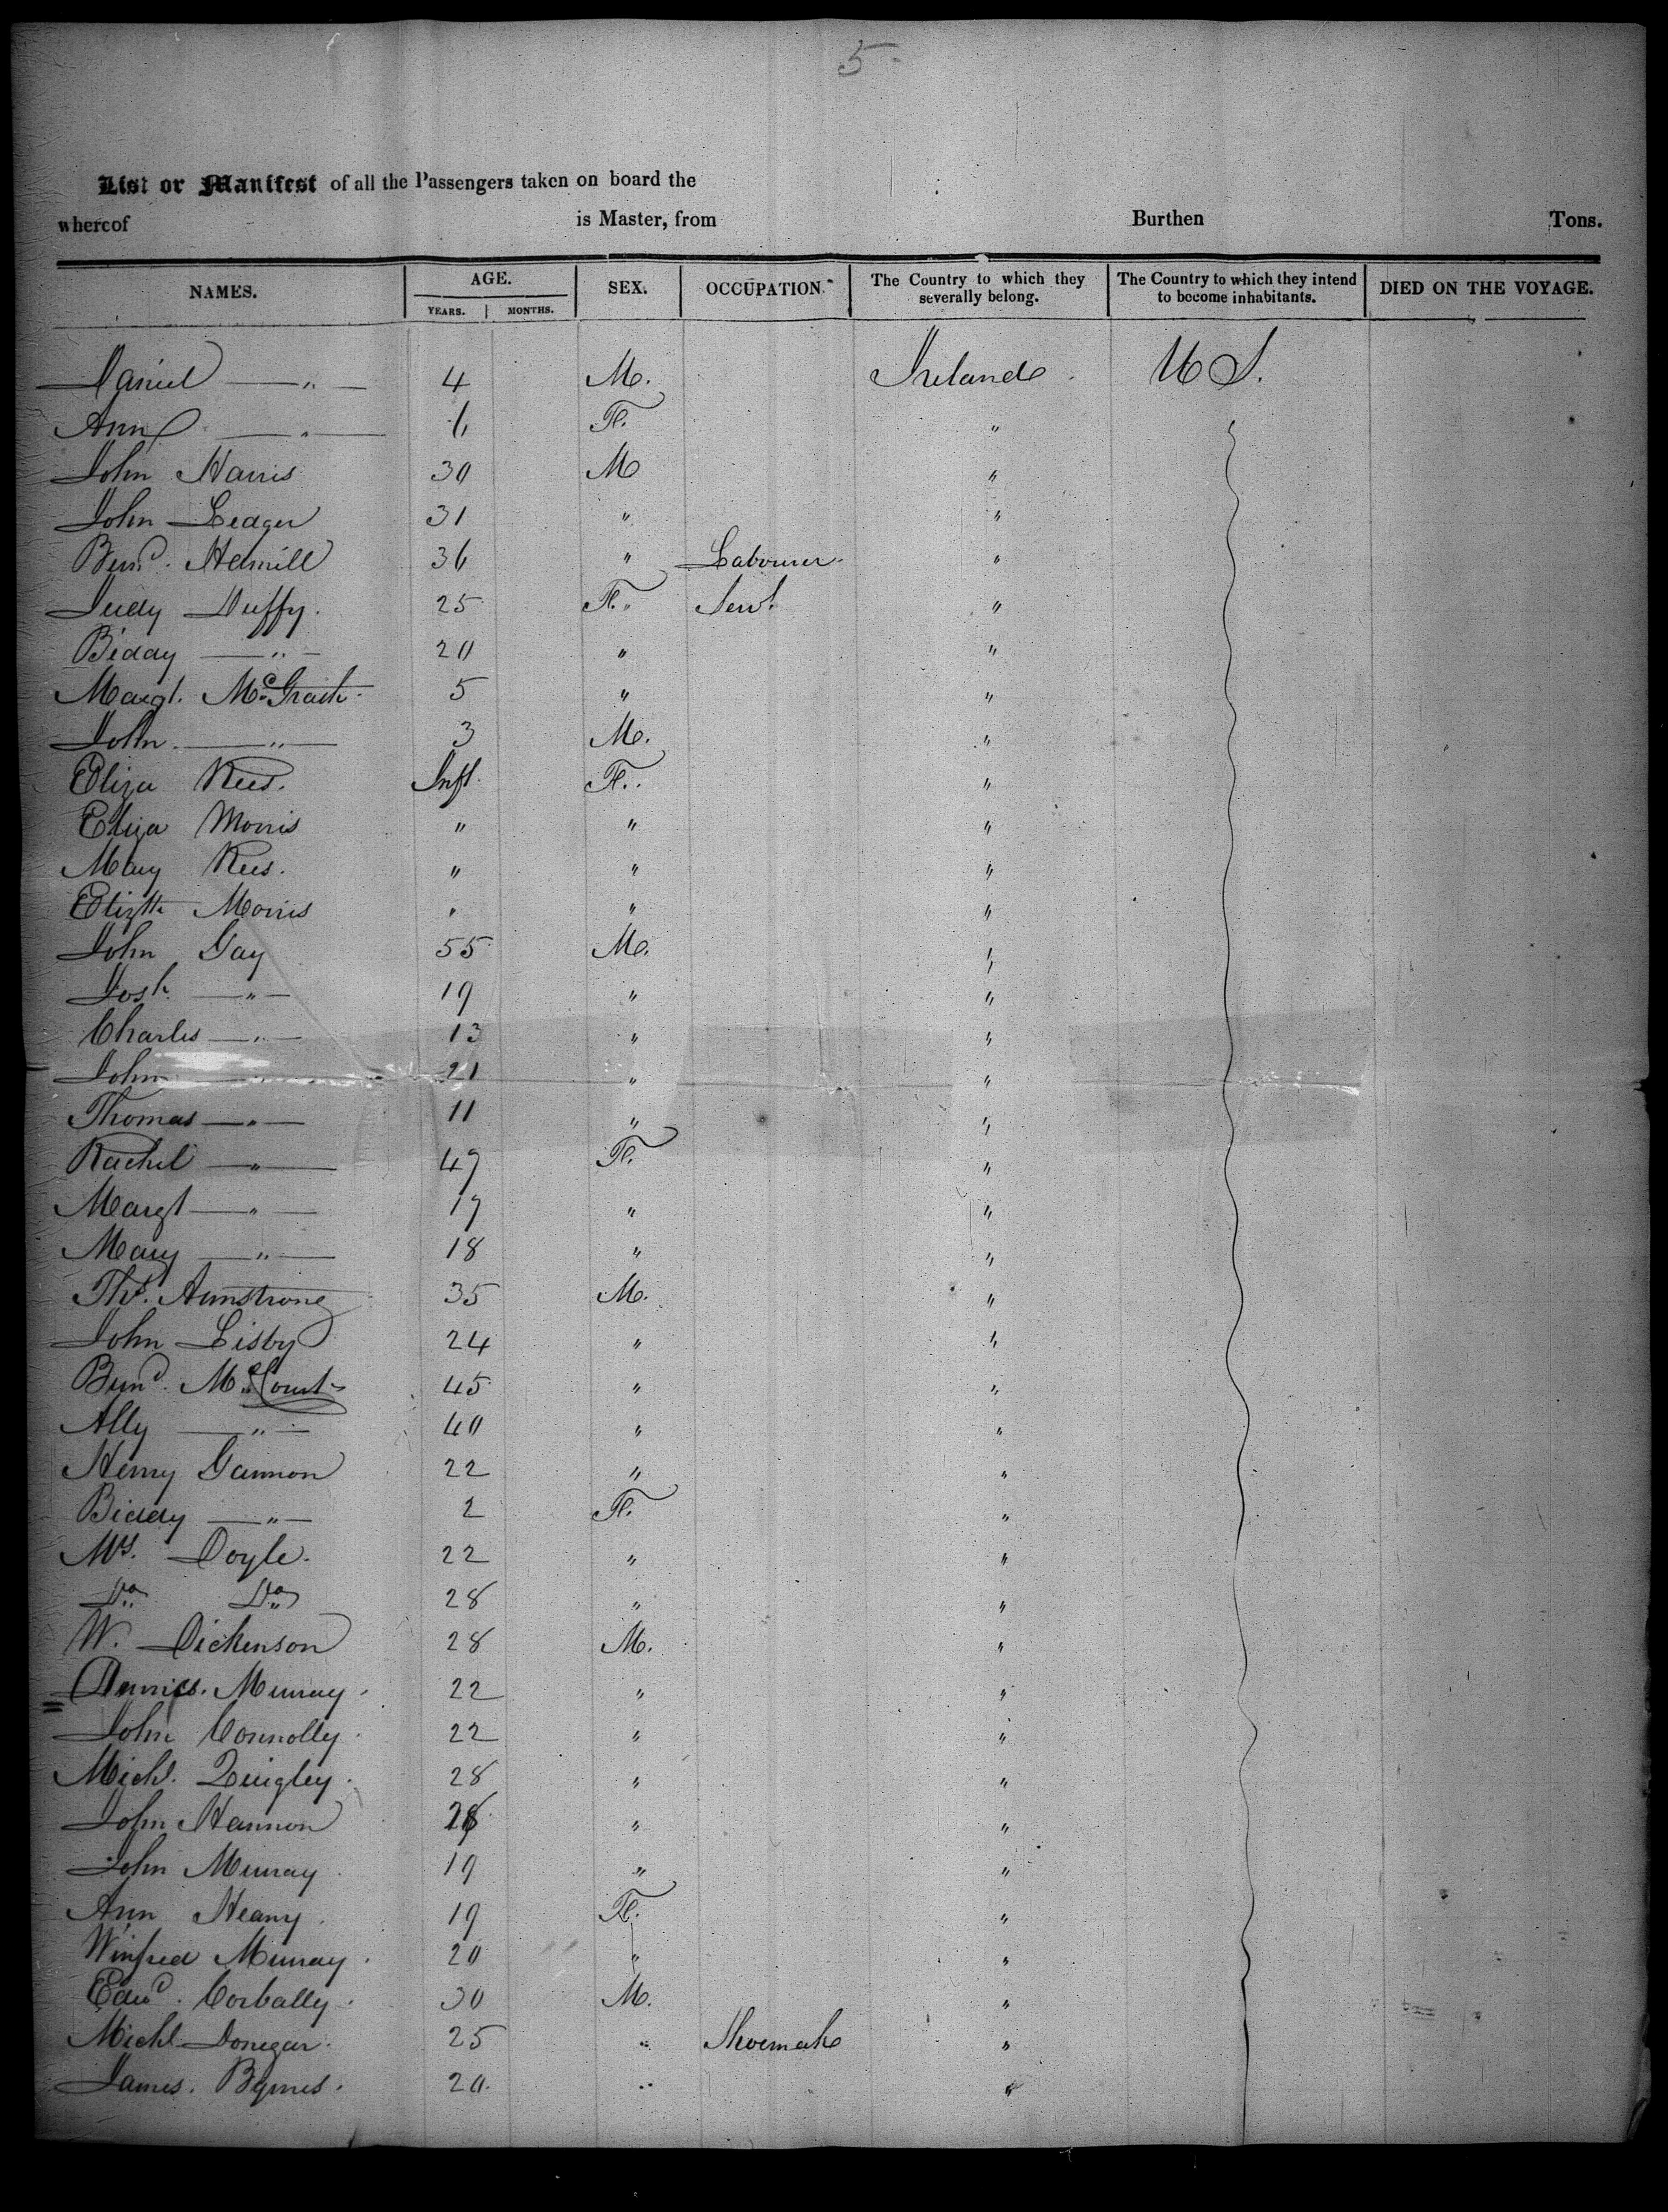 5
List or Manifest of all the Passengers taken on board the
whereof is Master, from Burthen Tons.
NAMES. AGE. SEX. OCCUPATION. The Country to which they severally belong. The Country to which they intend to become inhabitants. DIED ON THE VOYAGE.
YEARS. MONTHS.
Daniel — " — 4 M. Ireland U S.
Ann — " — F. "
John Harris 30 M "
John Ledger 31 " "
Bernd. 36 " Labourer "
Judy Duffy. 25 F. " Servt. "
Biddy — " — 20 " "
Margt. McGrath 5 " "
John — " — 3 M. "
Eliza Rees. Inft. F. "
Eliza Morris " " "
Mary Rees. " " "
Elizth Morris " " "
John Gay 55 M. "
Josh — " — 19 " "
Charles — " — 13 " "
John — " — 21 " "
Thomas — " — 11 " "
Rachel — " — 47 F. "
Margt — " — 17 " "
Mary — " — 18 " "
Thos. Armstrong 35 M. "
John Lisby 24 " "
Bernd. McCourt 45 " "
Ally — " — 40 " "
Henry Gannon 22 " "
Biddy — " — 2 F. "
Ms. Doyle. 22 " "
Do Do 28 " "
W. Dickenson 28 M. "
Murray. 22 " "
John Connolly. 22 " "
Michl. Quigley. 28 " "
John Hannon " "
John Murray 19 " "
Ann Heany. 19 F. "
Winfred Murray. 20 " "
Edwd. Corbally. 30 M. "
Michl Donegan. 25 " Shoemake "
James. Byrnes. 20. " "